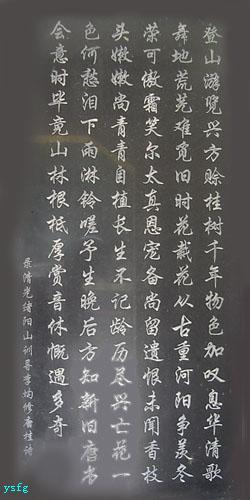 登山游览兴方赊桂树千年物色加叹息华清歌
舞地荒芜难觅旧时花栽花从古重河阳争羡冬
荣可傲霜笑尔太真恩宠备尚留遗恨未闻香枝
头嫩嫩尚青青自植长生不记龄历尽兴亡花一
色何愁泪下雨淋铃嗟予生晚后方知新旧唐书
会意时毕竟山林根柢厚赏音休慨遇多奇
录清光绪阳山训导李均修唐桂诗
ysfg